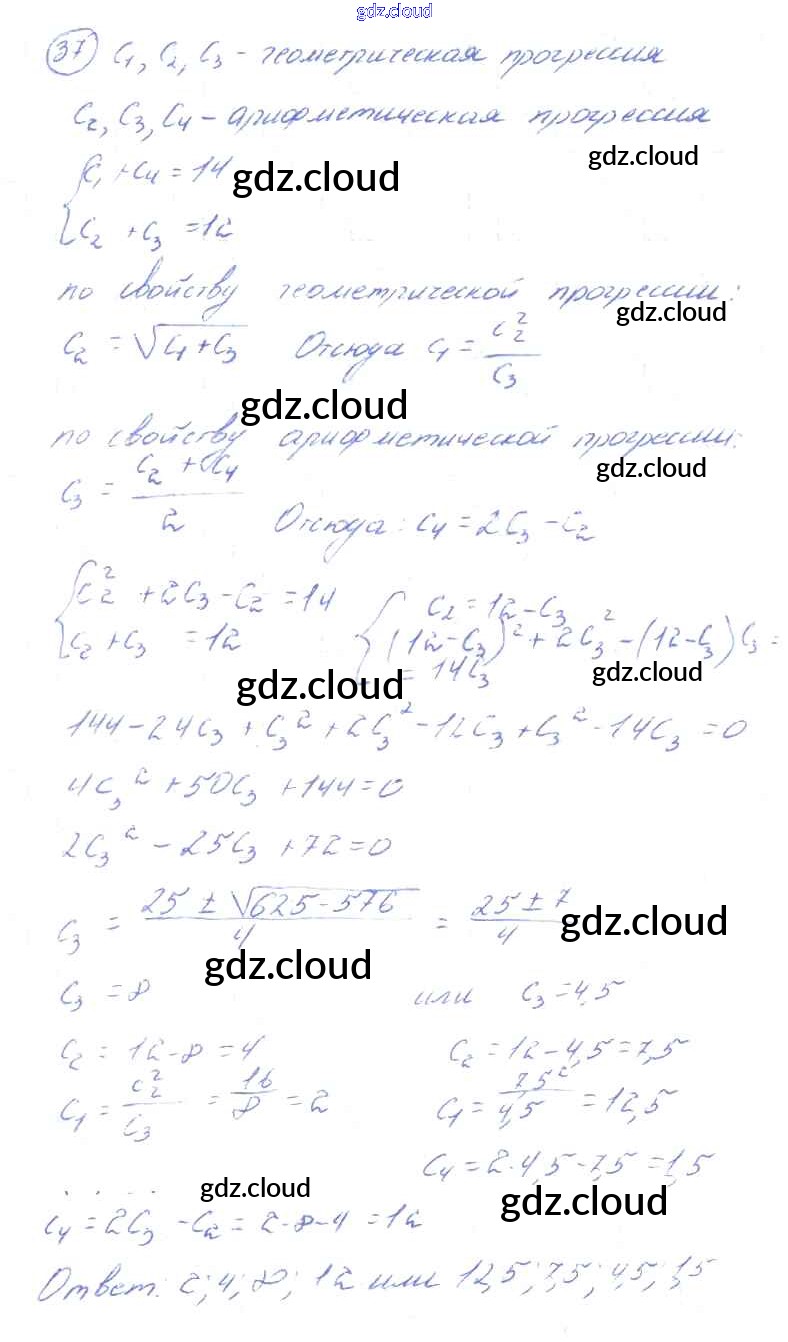 gdz.cloud
37 C₁, C₂, C₃ - геометрическая прогрессия
C₂, C₃, C₄ - арифметическая прогрессия
gdz.cloud
{C₁ + C₄ = 14
gdz.cloud
C₂ + C₃ = 12
по свойству геометрической прогрессии:
gdz.cloud
C₂ = √C₁ + C₃ Отсюда C₁ = C₂²/C₃
gdz.cloud
по свойству арифметической прогрессии:
gdz.cloud
C₃ = (C₂ + C₄)/2 Отсюда: C₄ = 2C₃ - C₂
{C₂² + 2C₃ - C₂ = 14
C₂ + C₃ = 12
{C₂ = 12 - C₃
(12 - C₃)² + 2C₃² - (12 - C₃)C₃ =
= 14C₃
gdz.cloud
gdz.cloud
144 - 24C₃ + C₃² + 2C₃² - 12C₃ + C₃² - 14C₃ = 0
4C₃² + 50C₃ + 144 = 0
2C₃² - 25C₃ + 72 = 0
C₃ = (25 ± √625 - 576)/4 = (25 ± 7)/4
gdz.cloud
gdz.cloud
C₃ = 8 или C₃ = 4,5
C₂ = 12 - 8 = 4 C₂ = 12 - 4,5 = 7,5
C₁ = C₂²/C₃ = 16/8 = 2 C₁ = 7,5²/4,5 = 12,5
C₄ = 2·4,5 - 7,5 = 1,5
gdz.cloud
gdz.cloud
C₄ = 2C₃ - C₂ = 2·8 - 4 = 12
Ответ: 2; 4; 8; 12 или 12,5; 7,5; 4,5; 1,5